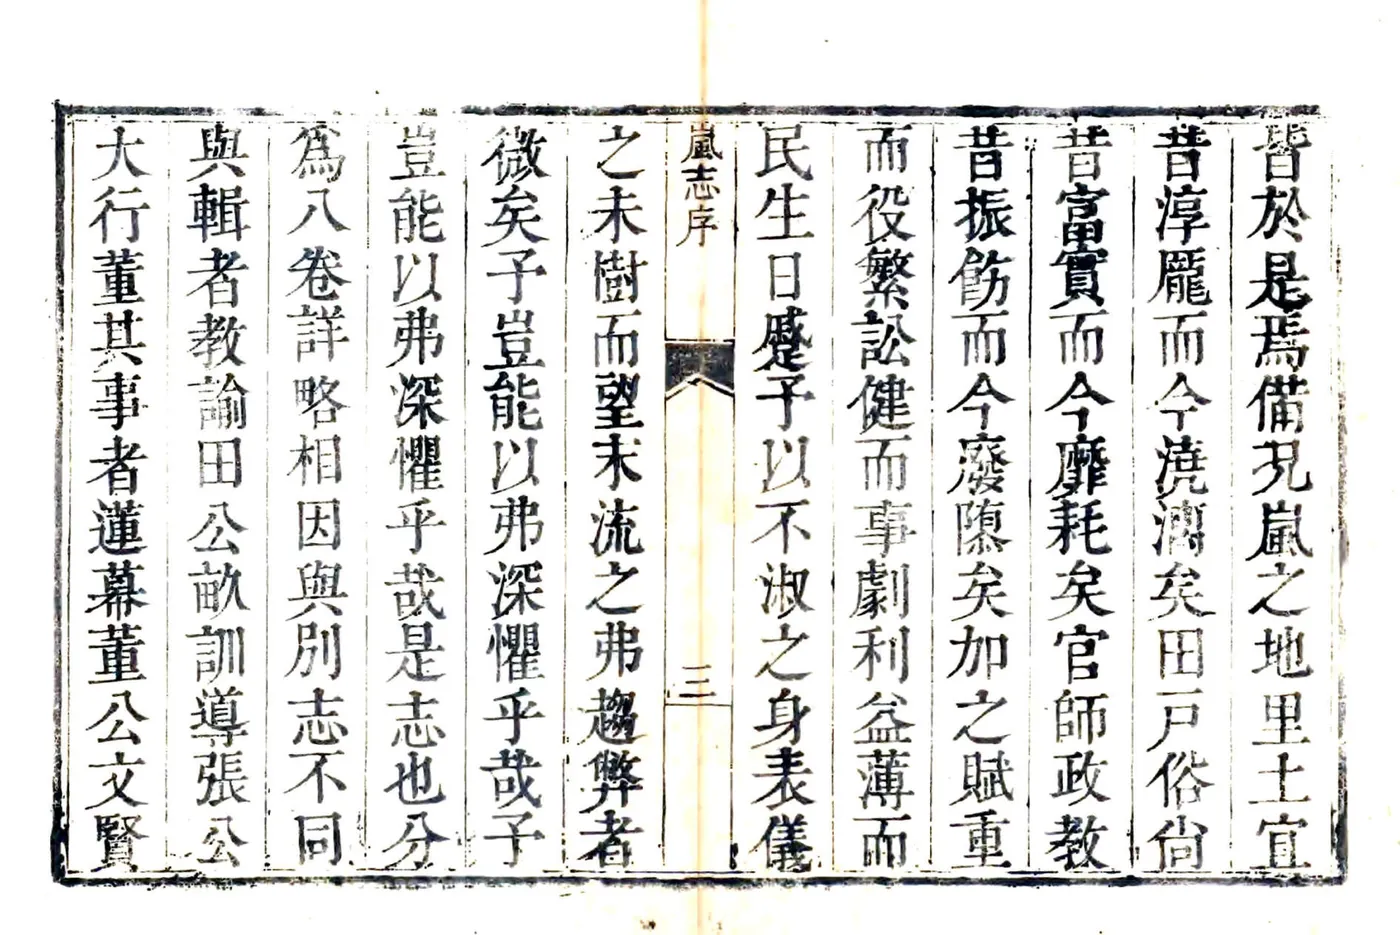 皆於是焉備見嵐之地里土宜
昔淳龐而今澆漓矣田戸俗尙
昔富實而今靡耗矣官師政教
昔振飭而今廢隳矣加之賦重
而役繁訟健而事劇利益薄而
民生日蹙予以不淑之身表儀
嵐志序
三
之未樹而望末流之弗趨弊者
微矣予豈能以弗深懼乎哉予
豈能以弗深懼乎哉是志也分
爲八卷詳略相因與別志不同
與輯者教諭田公畝訓導張公
大行董其事者蓮幕董公文賢